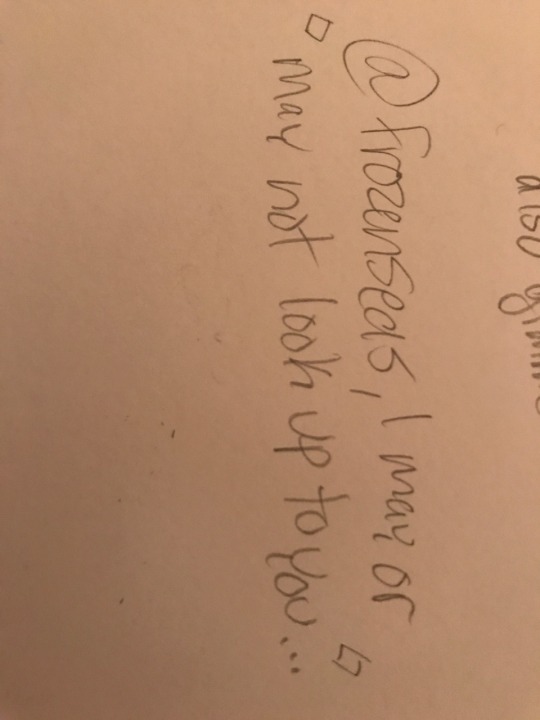 also
@frozenseals, I may or
may not look up to you...